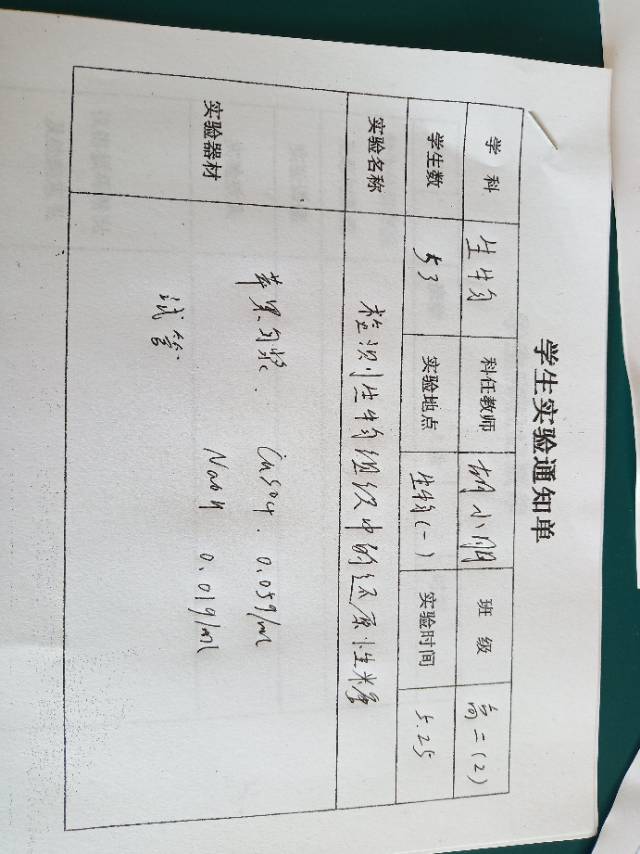 学生实验通知单
学 科 生物 科任教师 胡小朋 班 级 高二(2)
学生数 53 实验地点 生物(一) 实验时间 5.25
实验名称 检测生物组织中的还原性糖
实验器材 苹果匀浆. CuSO4. 0.05g/ml
试管 NaOH 0.01g/ml